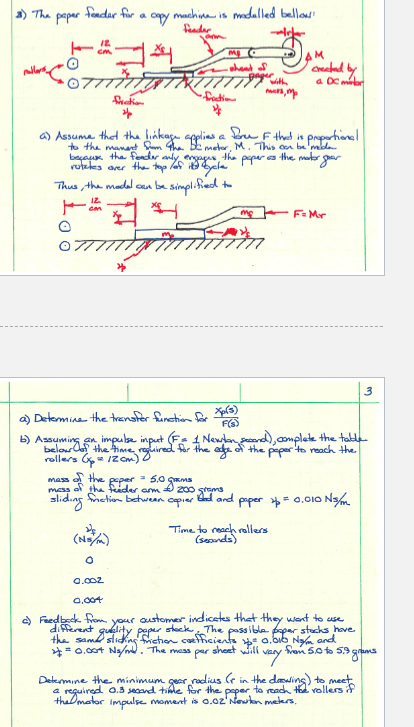 3) The paper feeder for a copy machine is modelled bellow:
feeder
arm
12
cm
xf
xp
mf
r
M
rollers
sheet of
paper
with
mass, mp
created by
a DC motor
friction
friction
a) Assume that the linkage applies a force F that is proportional
to the moment from the DC motor, M. This can be made
because the feeder only engages the paper as the motor gear
rotates over the top of its cycle
Thus, the model can be simplified to
12
cm
xp
xf
mf
F=Mr
mp
3
a) Determine the transfer function for Xp(s)/F(s)
b) Assuming an impulse input (F = 1 Newton second), complete the table
below of the time required for the edge of the paper to reach the
rollers (xp = 12cm)
mass of the paper = 5.0 grams
mass of the feeder arm = 200 grams
sliding friction between copier bed and paper νp = 0.010 Ns/m
νf
(Ns/m)
Time to reach rollers
(seconds)
0
0.002
0.004
c) Feedback from your customer indicates that they want to use
different quality paper stock. The possible paper stocks have
the same sliding friction coefficients νp = 0.010 Ns/m and
νf = 0.004 Ns/m. The mass per sheet will vary from 5.0 to 5.9 grams
Determine the minimum gear radius (r in the drawing) to meet
a required 0.3 second time for the paper to reach the rollers if
the motor impulse moment is 0.02 Newton meters.